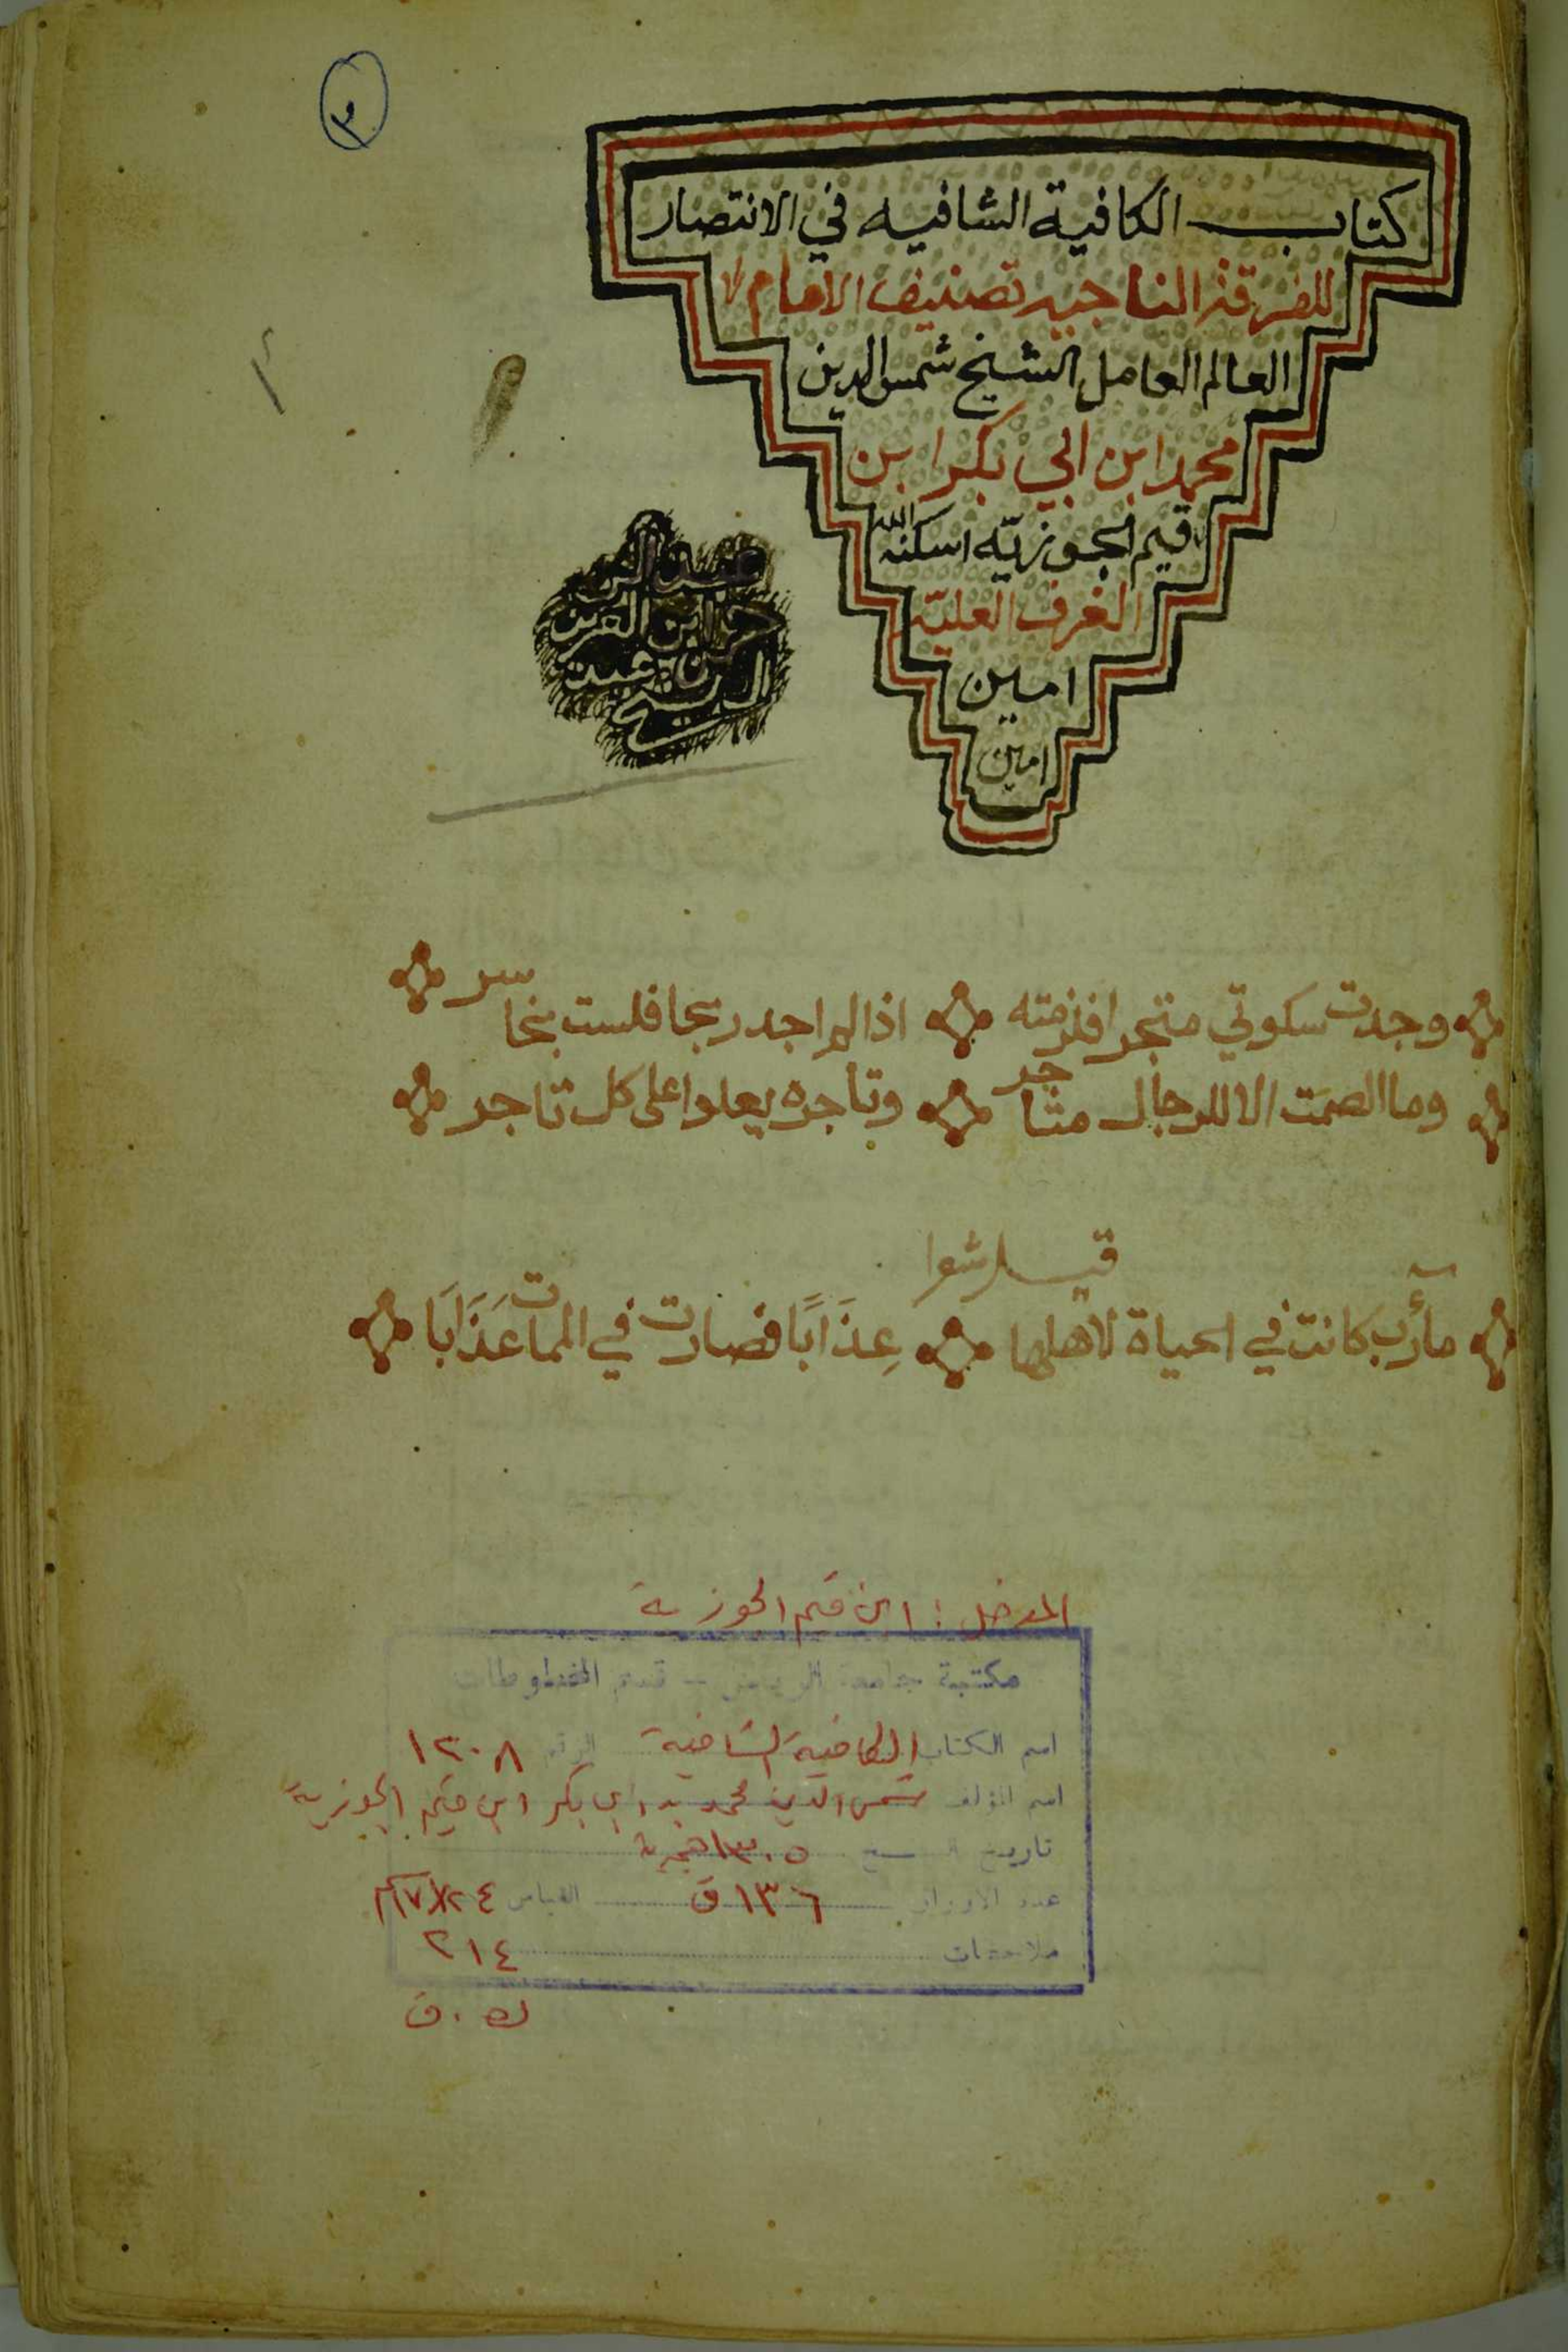 ٢
كتاب الكافية الشافيه في الانتصار
للفرقة الناجيه تصنيف الامام
العالم العامل الشيخ شمس الدين
محمد ابن ابي بكر ابن
قيم الجوزيّه اسكنه الله
الغرف العليّه
امين
امين
وجدت سكوتي متجرا فلزمته اذا لم اجد ربحا فلست بخاسر
وما الصمت الا للرجال متاجر وتاجره يعلوا على كل تاجر
مأرب كانت في الحياة لاهلها عِذَابًا فصارت في الممات عَذَابَا
المدخل : ابن قيم الجوزية
مكتبة جامعة الرياض - قسم المخطوطات
اسم الكتاب الكافية الشافية الرقم ١٢٠٨
اسم المؤلف شمس الدين محمد بن ابي بكر ابن قيم الجوزية
تاريخ النسخ ١٣٠٥ هجرية
عدد الاوراق ١٣٦ ق القياس ٢٤×١٧ سم
ملاحظات ٢١٤